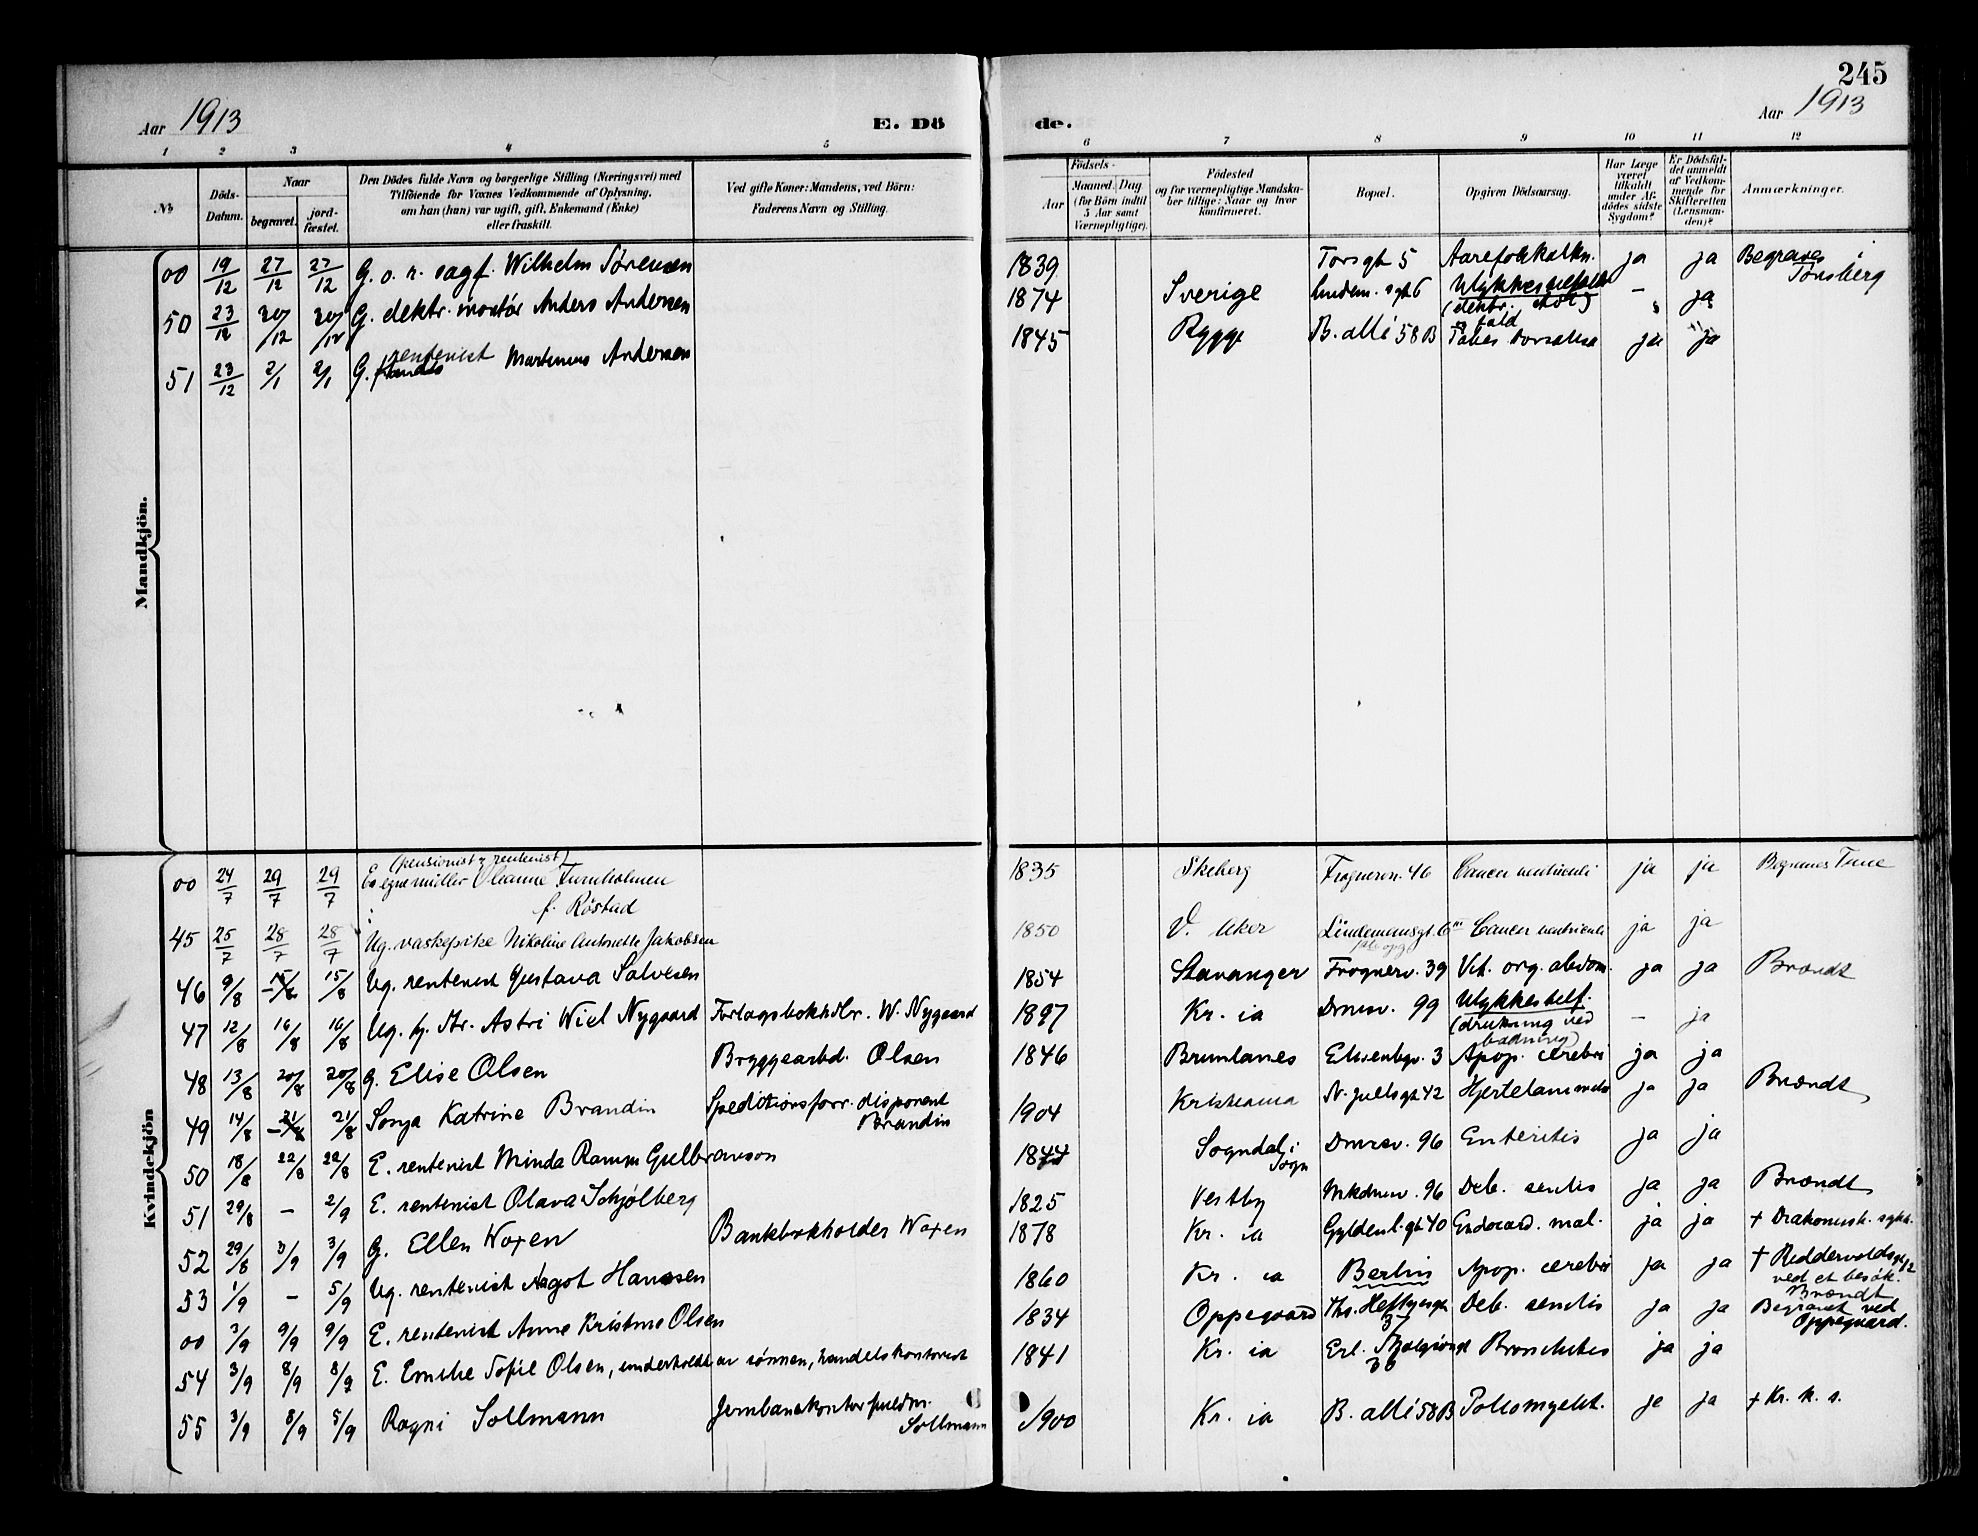 245
Aar 1913
E. Dö
de.
Aar 1913
1 2 3 4 5 6 7 8 9 10 11 12
No
Döds-Datum.
Naar
begravet.
jord-fæstet.
Den Dödes fulde Navn og borgerlige Stilling (Næringsvei) med
Tilföiende for Voxnes Vedkommende af Oplysning,
om han (hun) var ugift, gift, Enkemand (Enke)
eller fraskilt.
Ved gifte Koner: Mandens, ved Börn:
Faderens Navn og Stilling.
Födsels-
Aar
Maaned. Dag
(for Börn indtil
5 Aar samt
Værnepligtige).
Födested
og for værnepligtige Mandska-
ber tillige: Naar og hvor
konfirmeret.
Bopæl.
Opgiven Dödsaarsag.
Har Læge
været
tilkaldt
under Af-
dödes sidste
Sygdom?
Er Dödsfal-
det anmeldt
af Vedkom-
mende for
Skifteretten
(Lensman-
den)?
Anmærkninger.
Mandkjön.
00 19/12 27/12 27/12 G. o. r. sagf. Wilhelm Sørensen 1839 Torsgt 5 Aareforkalkn. ja ja Begraves i Tønsberg
50 23/12 30/12 30/12 G. elektr. montør Anders Andersen 1874 Sverige Lindem. gt 6 Ulykkestilfælde (elektr. støt) & fald - ja
51 23/12 2/1 2/1 G. rentenist Martinus Andersen 1845 Rygge B. allé 58 B Tabes dorsalis ja ja
Kvindekjön
00 24/7 29/7 29/7 (pensionist & rentenist) Oleanne Furuholmen f. Röstad 1835 Skeberg Frognerv. 46 Cancer ventriculi ja ja Begraves Tune
45 25/7 28/7 28/7 Ug. vaskepike Nikoline Antonette Jakobsen 1850 V. Aker Lindemansgt. 6 Cancer ventriculi ja ja
46 9/8 - 15/8 15/8 Ug. rentenist Gustava Salvesen 1854 Stavanger Frognerv. 39 Vit. org. abdom. ja ja Brændt
47 12/8 16/8 16/8 Ug. hj. dtr. Astri Wiel Nygaard Forlagsbokhdlr. W. Nygaard 1897 Kr. ia Drmsv. 99 Ulykkestilf. (drukning ved badning) - ja
48 13/8 20/8 20/8 G. Elise Olsen Bryggearbd. Olsen 1846 Brunlanes Elisenbgv. 3 Apop. cerebri ja ja
49 14/8 - 21/8 21/8 Sonja Katrine Brandin Speditionsforr. disponent Brandin 1904 Kristiania N. Juelsgt 42 Hjertelammelse ja ja Brændt
50 18/8 22/8 22/8 E. rentenist Minda Ramm Gulbranson 1844 Sogndal i Sogn Drmsv. 96 Enteritis ja ja
51 29/8 - 2/9 E. rentenist Olava Schjølberg 1825 Vestby Mkdmsv. 96 Deb. senilis ja ja Brændt
52 29/8 3/9 3/9 G. Ellen Woxen Bankbokholder Woxen 1878 Kr. ia Gyldenl. gt 40 Endocard. mal. ja ja + Diakoniss. sykh.
53 1/9 - 5/9 Ug. rentenist Aagot Hanssen 1860 Kr. ia Berlin Apop. cerebri ja ja + Riddervoldsgt 12 ved et besøk. Brændt
00 3/9 9/9 9/9 E. rentenist Anne Kristine Olsen 1834 Oppegaard Ths. Heftyesgt 37 Deb. senilis ja ja Begravet ved Oppegaard.
54 3/9 8/9 8/9 E. Emilie Sofie Olsen, underholdt av sønnen, handelskontorist 1841 Kr. ia Erl. Skjalgssønsgt 36 Bronchitis ja ja
55 3/9 8/9 5/9 Ragni Sollmann Jernbanekontorfuldm. Sollmann 1900 Kr. ia B. allé 58 B Poliomyelit. ja ja + Kr. k. s.